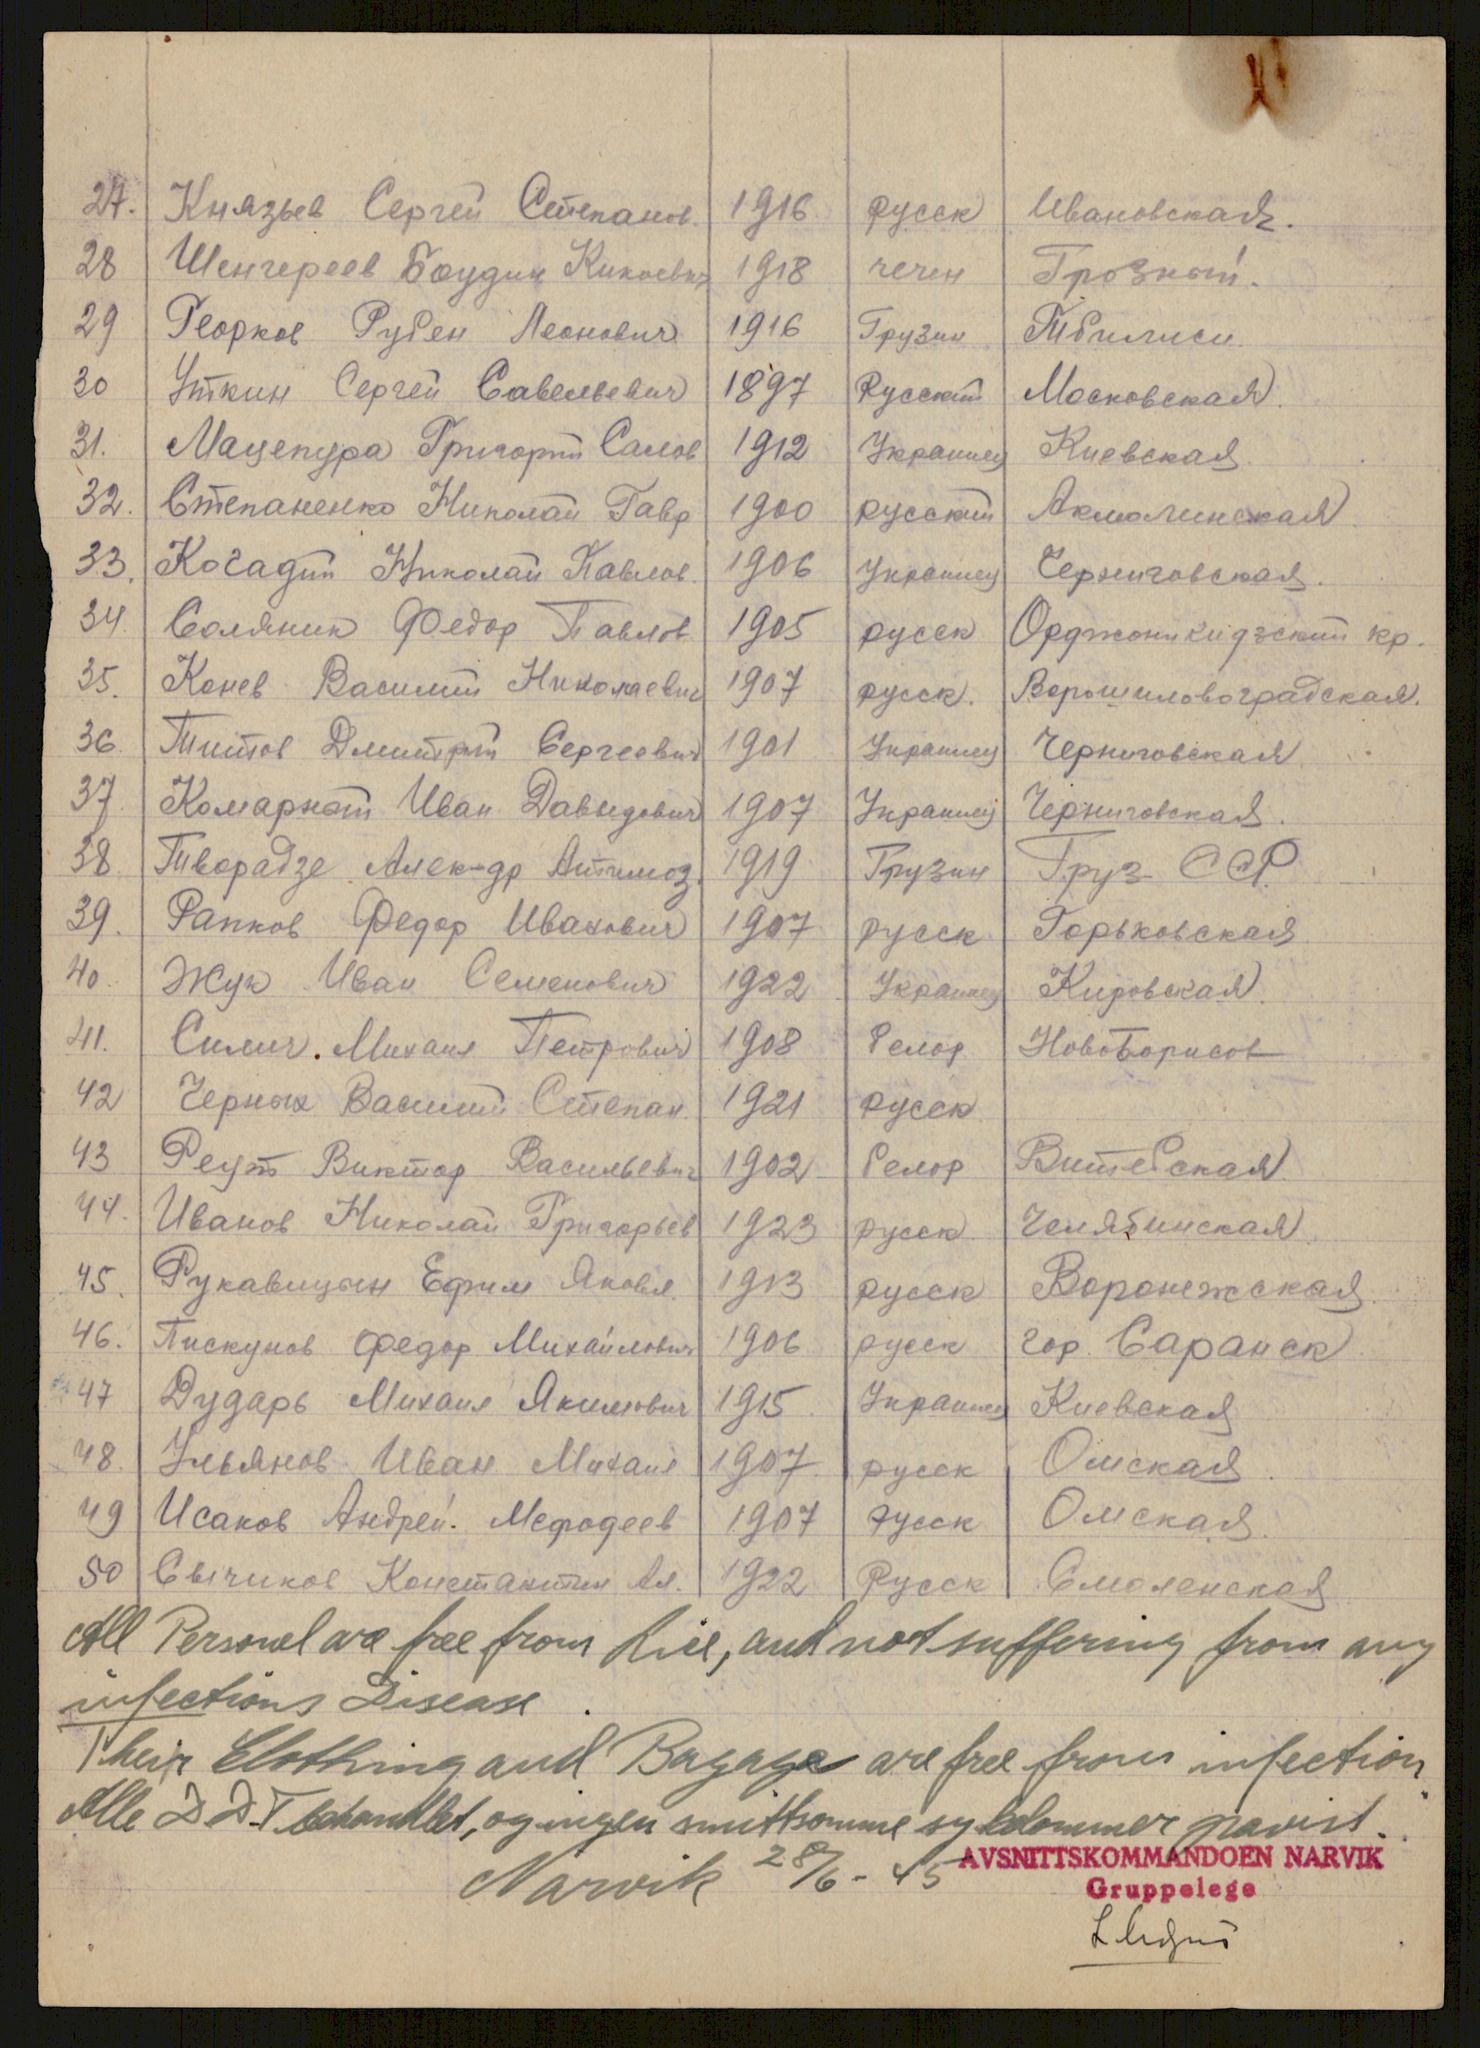 27. Князьев Сергей Степанов. 1916 русск Ивановская.
28 Шенгереев Боудин Кикоевич 1918 чечен Грозный.
29 Георков Рубен Леонович 1916 Грузин Тбилиси.
30 Уткин Сергей Савельевич 1897 Русский Московская.
31. Мацепура Григорий Самов 1912 Украинец Киевская.
32. Степаненко Николай Гавр 1900 русский Акмолинская
33. Кочадий Николай Павлов. 1906 Украинец Черниговская.
34. Соляник Федор Павлов 1905 русск Орджоникидзский кр.
35. Конев Василий Николаевич 1907 русск. Ворошиловоградская.
36. Титов Дмитрий Сергеевич 1901 Украинец Черниговская
37 Комарной Иван Давыдович 1907 Украинец Черниговская.
38 Творадзе Алек-др Антимоз. 1919 Грузин Груз ССР.
39. Рапков Федор Иванович 1907 русск Горьковская
40. Жук Иван Семенович 1922 Украинец Кировская.
41. Силич. Михаил Петрович 1908 белор Новоборисов
42 Черных Василий Степан. 1921 русск
43 Реут Виктор Васильевич 1902 белор Витебская.
44. Иванов Николай Григорьев 1923 русск Челябинская
45. Рукавицын Ефим Яковл. 1913 русск Воронежская
46. Пискунов Федор Михайлович 1906 русск гор. Саранск
47 Дударь Михаил Якимович 1915 Украинец Киевская
48. Ульянов Иван Михаил 1907 русск Омская.
49 Исаков Андрей. Мефодеев 1907 русск Омская.
50 Свычиков Константин Ал. 1922 Русск Смоленская
All Personel are free from lice, and not suffering from any
infections Disease.
Their Clothing and Bagage are free from infection
Alle D.D.T behandlet, og ingen smittsomme sykdommer påvist.
Narvik 28/6-45
AVSNITTSKOMMANDOEN NARVIK
Gruppelege